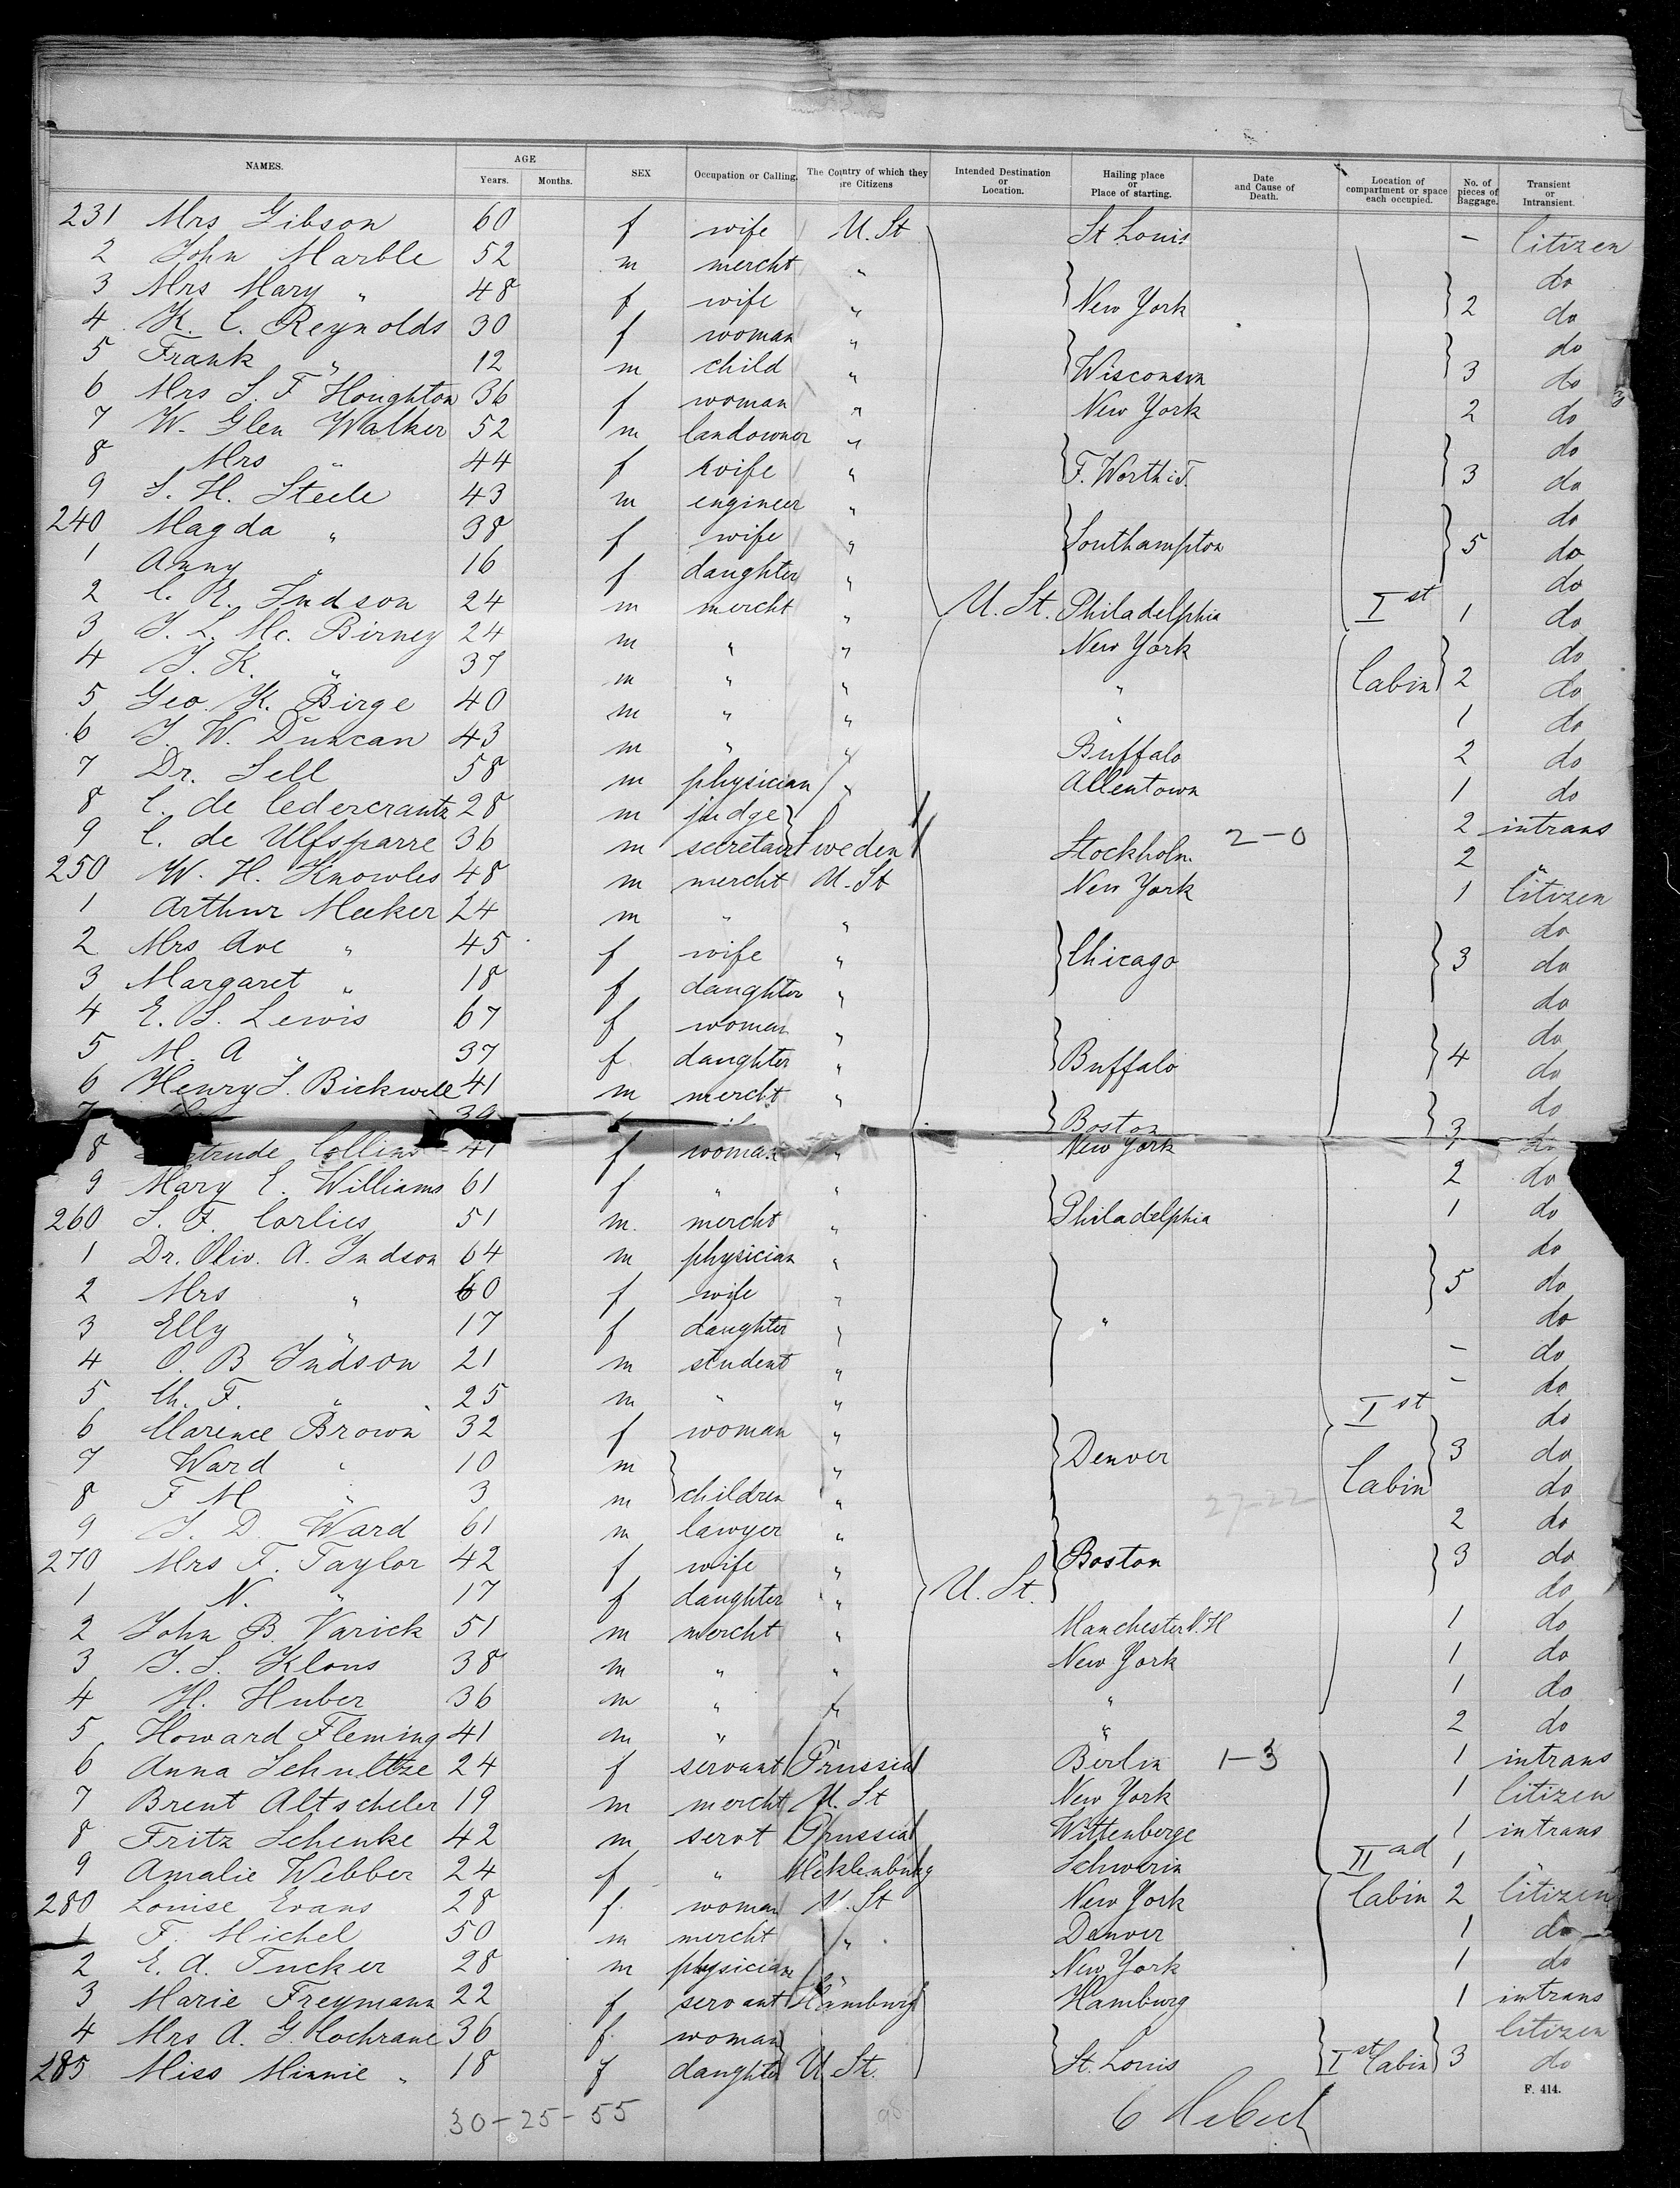 NAMES. AGE Years. Months. SEX Occupation or Calling. The Country of which they are Citizens Intended Destination or Location. Hailing place or Place of starting. Date and Cause of Death. Location of compartment or space each occupied. No. of pieces of Baggage. Transient or Intransient.
231 Mrs Gibson 60 f wife U. St St Louis - Citizen
2 John Marble 52 m mercht " do
3 Mrs Mary " 48 f wife " New York 2 do
4 K. C. Reynolds 30 f woman " do
5 Frank " 12 m child " Wisconsin 3 do
6 Mrs S. F Houghton 36 f woman " New York 2 do
7 W. Glen Walker 52 m landowner " do
8 Mrs " 44 f wife " F. Worth 3 do
9 S. H. Steele 43 m engineer " do
240 Magda " 38 f wife " Southampton 5 do
1 Anny " 16 f daughter " do
2 C. R. Judson 24 m mercht " U. St. Philadelphia Ist 1 do
3 J. L. Mc. Birney 24 m " " New York do
4 J. K. " 37 m " " " Cabin 2 do
5 Geo. K. Birge 40 m " " " 1 do
6 J. W. Duncan 43 m " " Buffalo 2 do
7 Dr. Sell 58 m physician " Allentown 1 do
8 C. de Cedercrantz 28 m judge 2 intrans
9 C. de Ulfsparre 36 m secretair Sweden Stockholm 2-0 2 "
250 W. H. Knowles 48 m mercht U. St New York 1 Citizen
1 Arthur Meeker 24 m " " do
2 Mrs Ave " 45 f wife " Chicago 3 do
3 Margaret " 18 f daughter " do
4 E. S. Lewis 67 f woman " do
5 M. A " 37 f daughter " Buffalo 4 do
6 Henry S. Bickwell 41 m mercht " do
7 39 Boston 3
8 trude Collins 41 f woman " New York do
9 Mary E. Williams 61 f " " 2 do
260 S. F. Corlies 51 m mercht " Philadelphia 1 do
1 Dr. Oliv. A. Judson 64 m physician " do
2 Mrs " 60 f wife " 5 do
3 Elly " 17 f daughter " " do
4 O. B Judson 21 m student " - do
5 Ch. F. " 25 m " " - do
6 Clarence Brown 32 f woman " Ist do
7 Ward " 10 m " Denver 3 do
8 F M " 3 m children " 27-22 Cabin do
9 J. D. Ward 61 m lawyer " 2 do
270 Mrs F. Taylor 42 f wife " Boston 3 do
1 N. " 17 f daughter " U. St. do
2 John B. Varick 51 m mercht " Manchester N. H 1 do
3 J. S. Klous 38 m " " New York 1 do
4 H. Huber 36 m " " " 1 do
5 Howard Fleming 41 m " " " 2 do
6 Anna Schultze 24 f servant Prussia Berlin 1-3 1 intrans
7 Brent Altscheler 19 m mercht U. St New York 1 Citizen
8 Fritz Schenke 42 m servt Prussia Wittenberge 1 intrans
9 Amalie Webber 24 f " Meklenburg Schwerin IInd 1 "
280 Louise Evans 28 f woman U. St New York Cabin 2 Citizen
1 F. Michel 50 m mercht " Denver 1 do
2 E. A. Tucker 28 m physician " New York 1 do
3 Marie Freymann 22 f servant Hamburg Hamburg 1 intrans
4 Mrs A. G. Cochrane 36 f woman Citizen
285 Miss Minnie " 18 f daughter U. St. St. Louis Ist Cabin 3 do
F. 414.
30-25-55